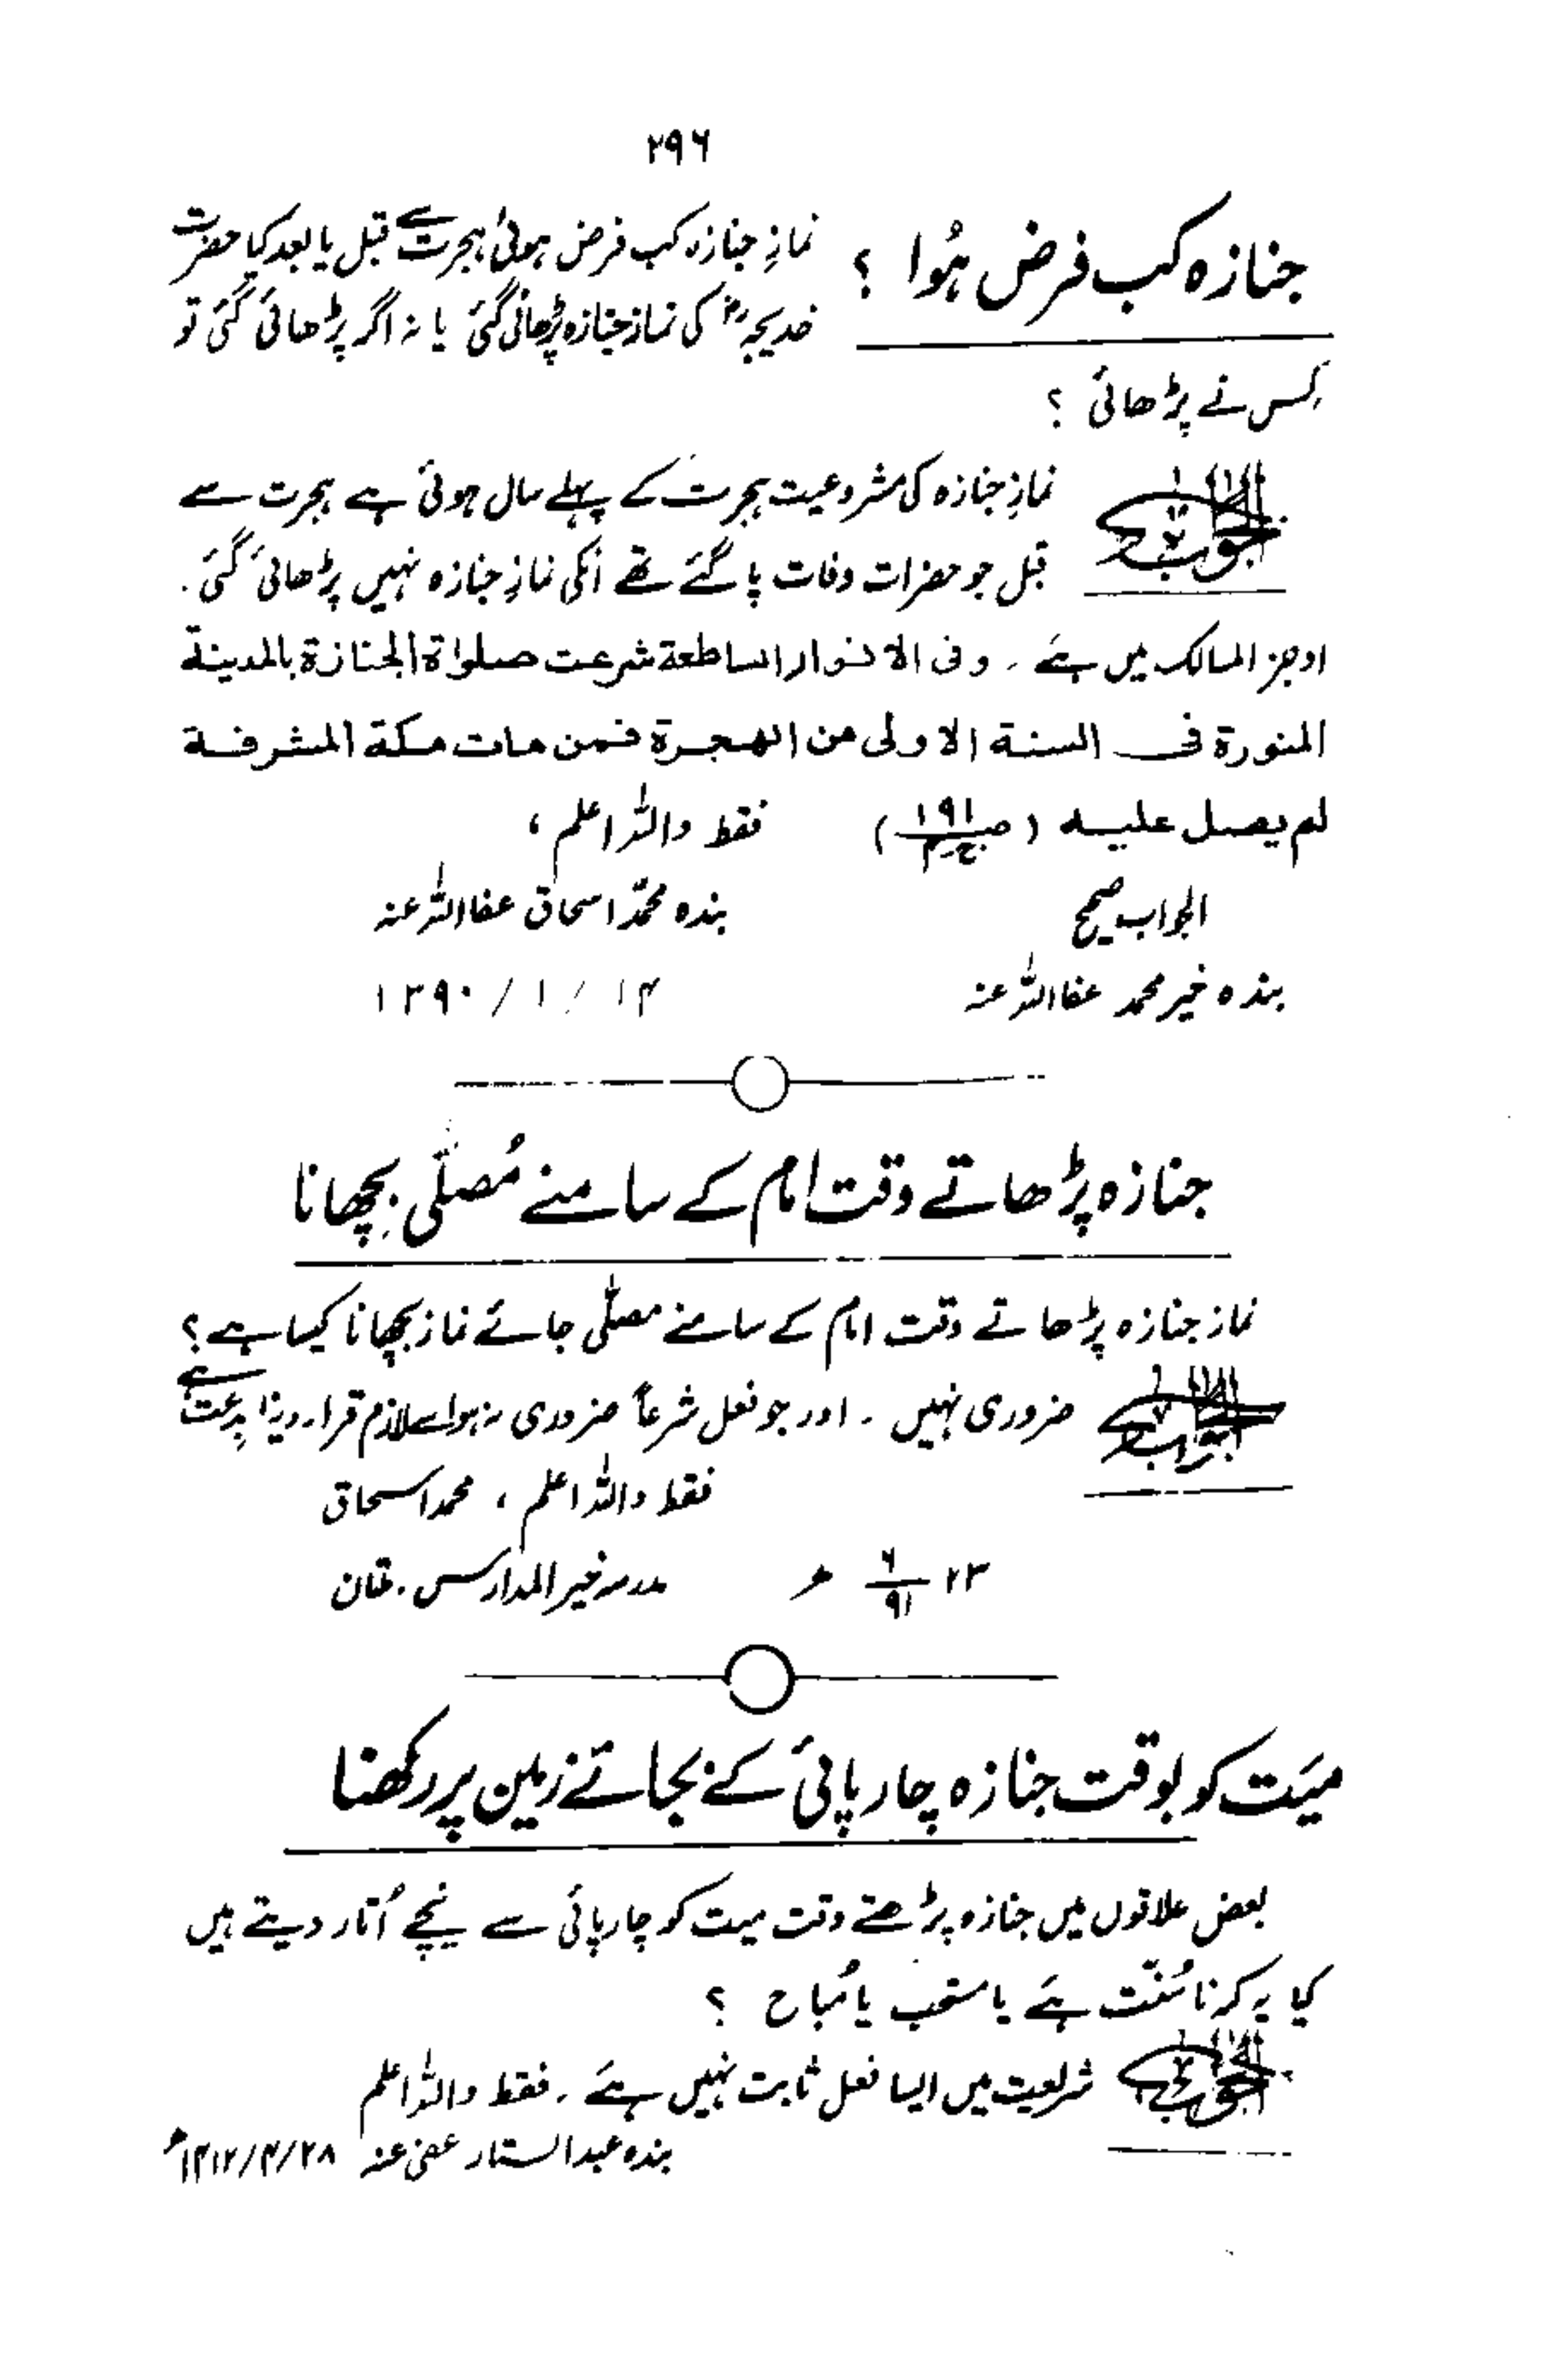 ۲۹۶
جنازہ کب فرض ہُوا ؟
نمازِ جنازہ کب فرض ہوئی، ہجرت سے قبل یا بعد کیا حضرت
خدیجہ رض کی نماز جنازہ پڑھائی گئی یا نہ اگر پڑھائی گئی تو
کِس نے پڑھائی ؟
الجواب
نمازِ جنازہ کی مشروعیت ہجرت کے پہلے سال ہوئی ہے ہجرت سے
قبل جو حضرات وفات پا گئے تھے انکی نمازِ جنازہ نہیں پڑھائی گئی۔
اوجز المسالک میں ہے ۔ وفی الانوار الساطعة شرعت صلواة الجنازة بالمدينة
المنورة فی السنة الاولی من الهجرة فمن مات مكة المشرفة
لم يصل عليه ( ص ۱۹۱ ) فقط واللہ اعلم ،
الجواب صحیح بندہ محمّد اسحاق عفا اللہ عنہ
بندہ خیر محمد عفا اللہ عنہ ۱۴ / ۱ / ۱۳۹۰
جنازہ پڑھاتے وقت امام کے سامنے مُصلّٰی بِچھانا
نماز جنازہ پڑھاتے وقت امام کے سامنے مصلّٰی جائے نماز بچھانا کیسا ہے ؟
الجواب
ضروری نہیں ۔ اور جو فعل شرعاً ضروری نہ ہو اسے لازم قرار دینا بدعت ہے
فقط واللہ اعلم ، محمد اسحاق
۲۳ ۶/۹۱ ھ مدرسہ خیر المدارس ۔ ملتان
میّت کو بوقت جنازہ چارپائی کے بجائے زمین پر رکھنا
بعض علاقوں میں جنازہ پڑھتے وقت میت کو چارپائی سے نیچے اُتار دیتے ہیں
کیا یہ کرنا سُنّت ہے یا مستحب یا مُباح ؟
الجواب
شریعت میں ایسا فعل ثابت نہیں ہے ۔ فقط واللہ اعلم
بندہ عبدالستار عفی عنہ ۲۸/۴/۱۴۱۲ھ